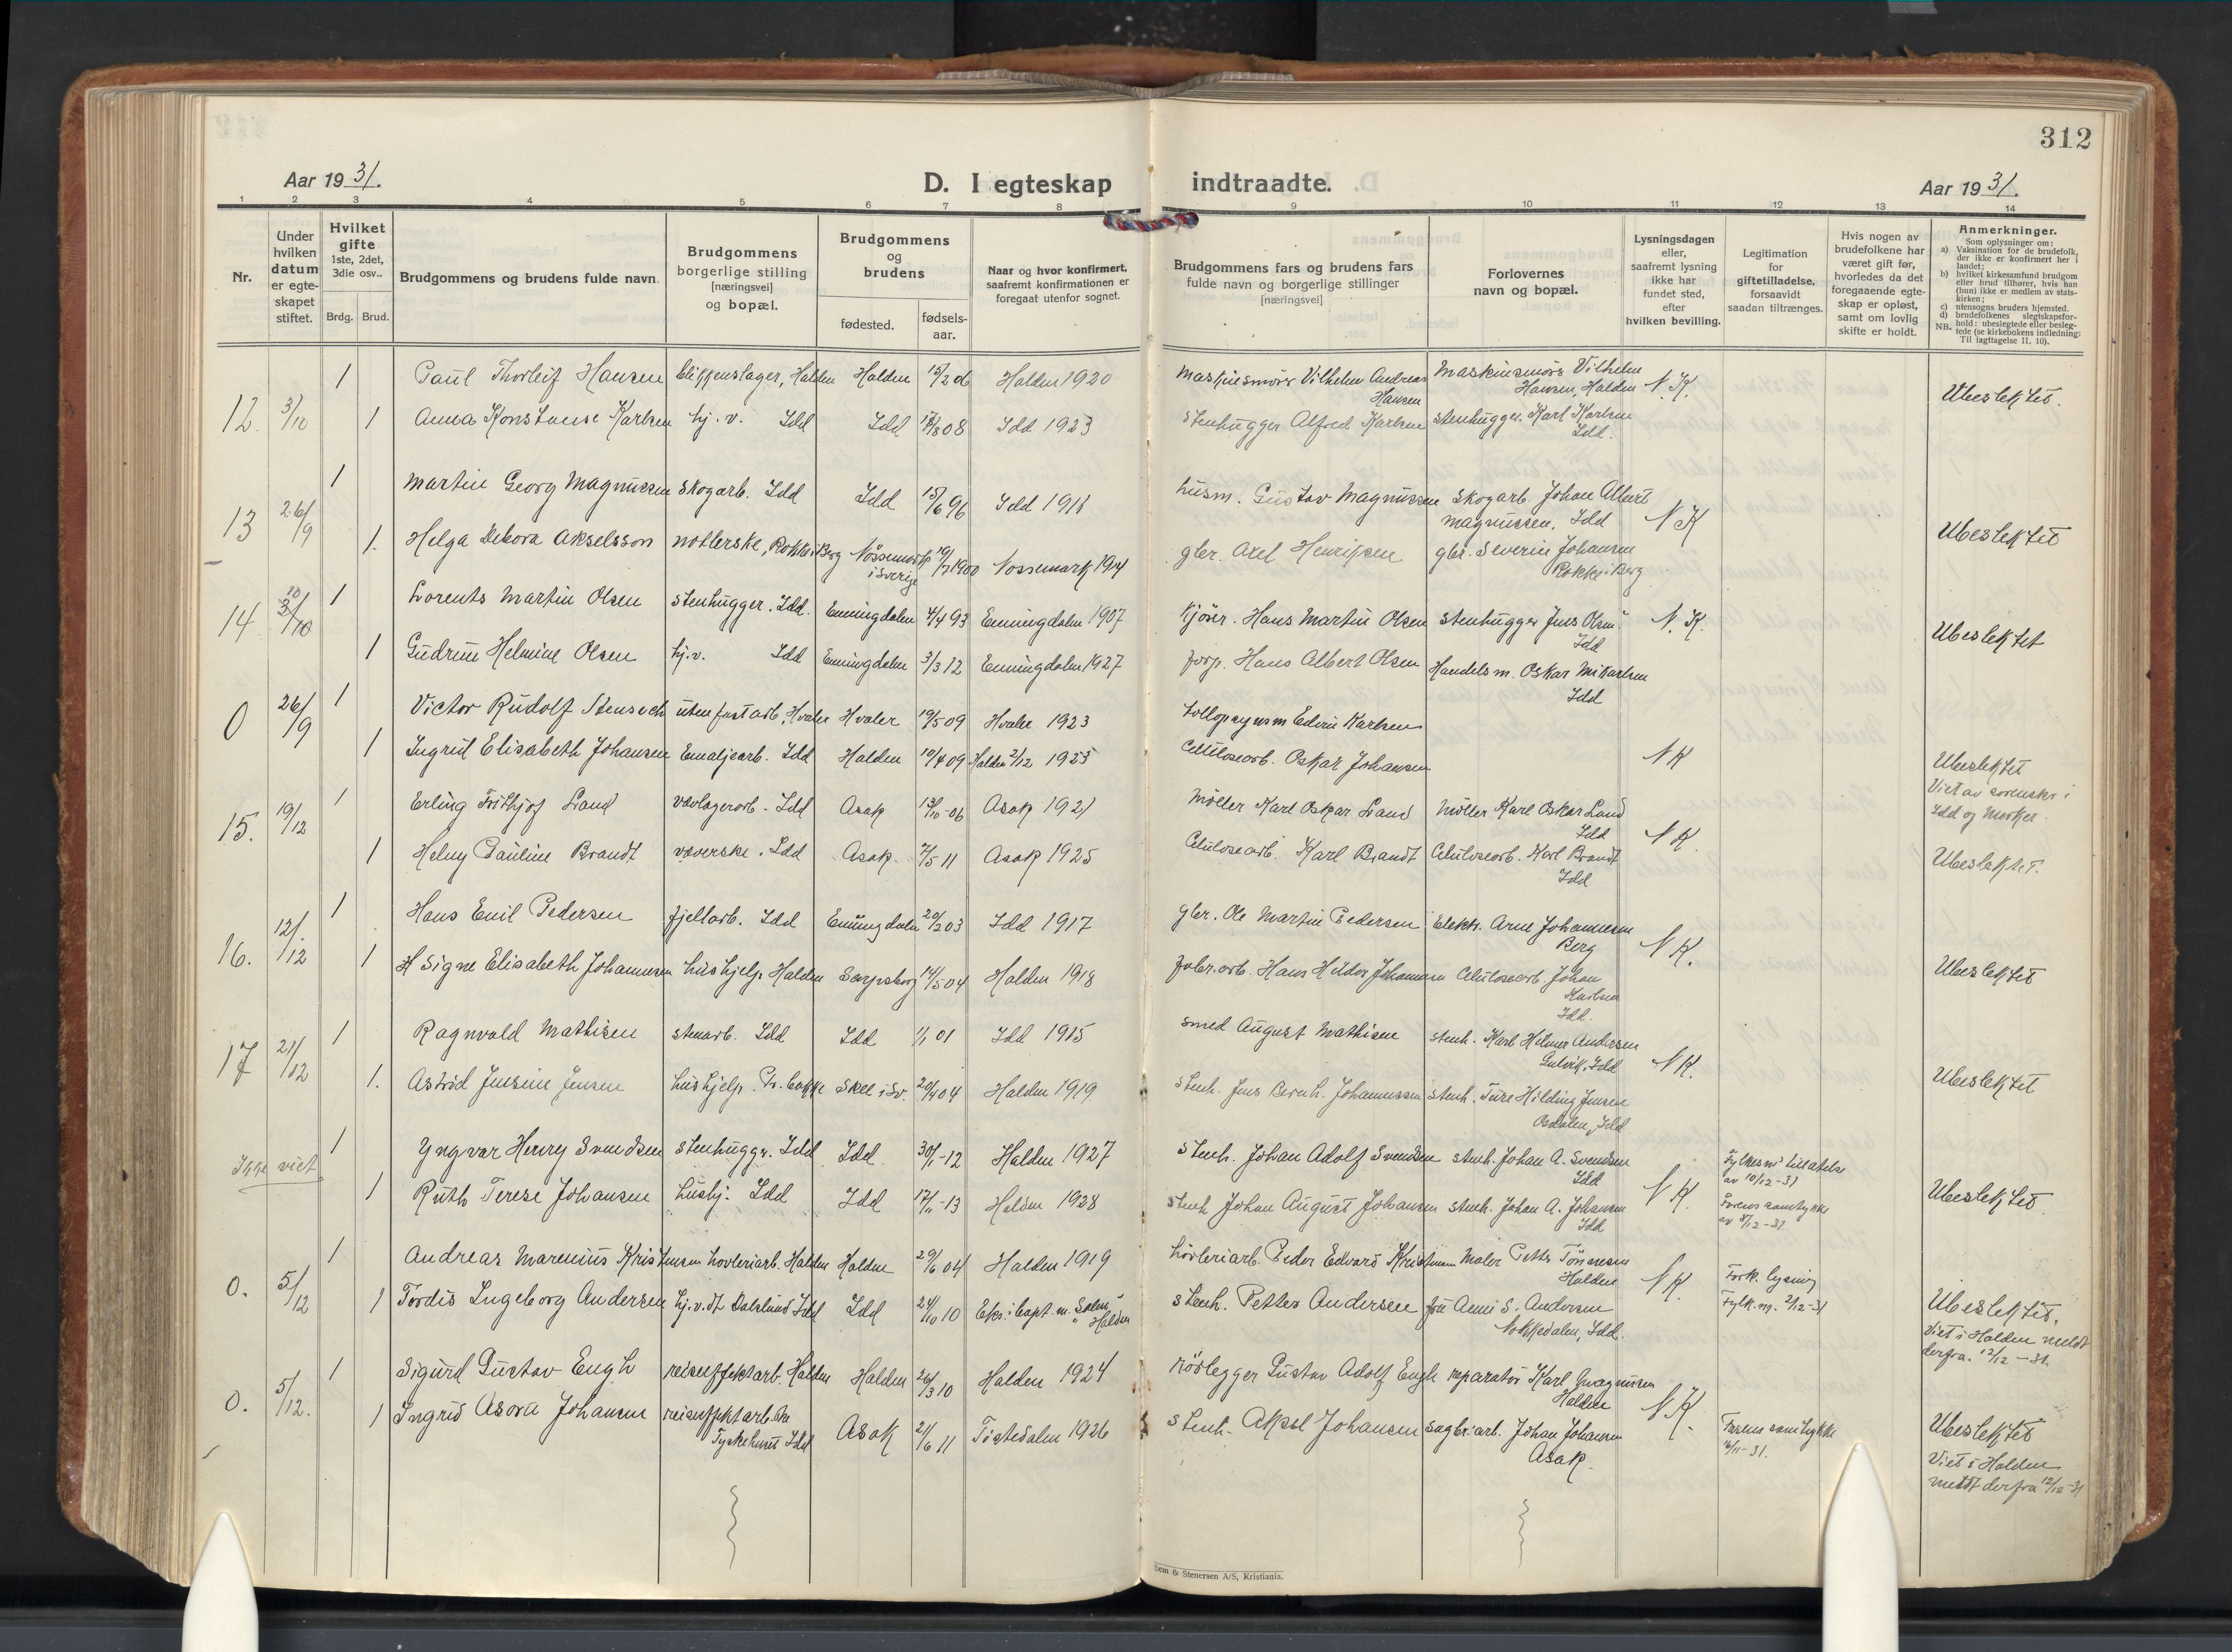 312
Aar 1931.
D. I egteskap indtraadte.
Aar 1931.
1 2 3 4 5 6 7 8 9 10 11 12 13 14
Nr.
Under hvilken datum er egte-skapet stiftet.
Hvilket gifte 1ste, 2det, 3die osv..
Brdg. Brud.
Brudgommens og brudens fulde navn.
Brudgommens borgerlige stilling [næringsvei] og bopæl.
Brudgommens og brudens
fødested.
fødsels-aar.
Naar og hvor konfirmert, saafremt konfirmationen er foregaat utenfor sognet.
Brudgommens fars og brudens fars fulde navn og borgerlige stillinger [næringsvei]
Forlovernes navn og bopæl.
Lysningsdagen eller, saafremt lysning ikke har fundet sted, efter hvilken bevilling.
Legitimation for giftetilladelse, forsaavidt saadan tiltrænges.
Hvis nogen av brudefolkene har været gift før, hvorledes da det foregaaende egte-skap er opløst, samt om lovlig skifte er holdt.
Anmerkninger.
Som oplysninger om:
a) Vaksination for de brudefolk, der ikke er konfirmert her i landet;
b) hvilket kirkesamfund brudgom eller brud tilhører, hvis han (hun) ikke er medlem av stats-kirken;
c) utensogns bruders hjemsted.
d) brudefolkenes slegtskapsfor-hold: ubeslegtede eller besleg-tede (se kirkebokens indledning:
NB. Til iagttagelse II. 10).
12. 3/10 1 Paul Thorleif Hansen blikkenslager, Halden Halden 15/2 06 Halden 1920 Maskinsmörer Vilhelm Andreas Hansen Maskinsmörer Vilhelm Hansen, Halden N.K. Ubeslektet.
1 Anna Konstanse Karlsen hj. v. Idd Idd 08 Idd 1923 Stenhugger Alfred Karlsen stenhugger Karl Karlsen Idd.
13 26/9 1 Martin Georg Magnussen Skogarb. Idd Idd 15/6 96 Idd 1911 husm. Gustav Magnussen Skogarb. Johan Albert Magnussen, Idd N K Ubeslektet
1. Helga Debora Akselsson notlerske, Rokke i Berg Nössemark i Sverige 1900 Nossemark 1914 gbr. Axel Henriksen gbr. Severin Johansen Rokke i Berg
14 10/10 1 Lorents Martin Olsen Stenhugger. Idd. Enningdalen 4/4 93 Enningdalen 1907 Kjörer. Hans Martin Olsen Stenhugger Jens Olsen Idd N.K. Ubeslektet
1 Gudrun Helmine Olsen hj.v. Idd Enningdalen 3/3 12 Enningdalen 1927 forp. Hans Albert Olsen Handelsm. Oskar Mikaelsen Idd
0 26/9 1 Victor Rudolf Stensvch uten fast arb, Hvaler Hvaler 19/5 09 Hvaler 1923 Edvin Karlsen
1 Ingrid Elisabeth Johansen Emaljearb. Idd Halden 10/4 09 Halden 2/12 1923 Celluloseorb. Oskar Johansen N K Ubeslektet
Viet av sorenskr i Idd og Marker.
15. 19/12 1 Erling Frithjof Lund vevlagerarb. Idd Asak 13/10-06 Asak 1921 Möller Karl Oskar Lund Möller Karl Oskar Lund Idd N K.
1 Helny Pauline Brandt væverske. Idd Asak. 7/5 11 Asak 1925 Celulosearb. Karl Brandt Celulosearb. Karl Brandt Idd Ubeslektet.
16. 12/12 1 Hans Emil Pedersen fjellarb. Idd Enningdalen 20/2 03 Idd 1917 gbr. Ole Martin Pedersen Elektr. Arne Johannesen Berg N K.
1 H Signe Elisabeth Johannesen hushjelp Halden Sarpsborg 14/5 04 Halden 1918 fabr.arb. Hans Hildor Johannesen Celulosearb Johan Karlsen Idd. Ubeslektet
17 21/12 1 Ragnvald Mathisen stenarb. Idd Idd 1/1 01 Idd 1915 smed August Mathisen stenh. Karl Hilmer Andersen Idd N K.
1. Astrid Jensine Jensen hushjelp. Skee i Sv. 20/4 04 Halden 1919 Stenh. Jens Bernh. Johannessen stenh. Ture Hilding Jensen Idd Ubeslektet
Ikke viet 1 Yngvar Henry Svendsen Stenhugger. Idd Idd. 30/1-12 Halden 1927 Stenh. Johan Adolf Svendsen stenh. Johan A. Svendsen Idd Fylkesm's tillatelse av 10/12-31
1 Ruth Terese Johansen hushj. Idd Idd 17/11-13 Halden 1928 Stenh Johan August Johansen stenh. Johan A. Johansen Idd N K. Farens samtykke av 8/12-31 Ubeslektet.
0. 5/12 1 Andreas Marenius Kristensen hovleriarb. Halden Halden 29/6 04 Halden 1919 hövleriarb. Peder Edvard Kristensen Maler Petter Tönnesen Halden N K Fork. lysning
Fylk. m. 2/12-31
1 Tordis Ingeborg Andersen hj.v. Idd Idd 24/10 10 Halden Stenh. Petter Andersen fru Anni S. Andersen Nokkedalen, Idd. Ubeslektet.
Viet i Halden meldt derfra. 12/12-31.
0. 5/12. 1 Sigurd Gustav Engh reiseffektarb. Halden Halden 26/3 10 Halden 1924 rörlegger Gustav Adolf Engh reparatör Karl Magnussen Halden N K.
1 Ingrid Asora Johansen reiseffektarb. Tyskehuset Idd Asak 21/6 11 Tistedalen 1926 Stenh. Aksel Johansen Sagbr.arb. Johan Johansen Asak. Farens samtykke 16/11-31. Ubeslektet
Viet i Halden meldt derfra 12/12-31
Sem & Stenersen A/S, Kristiania.